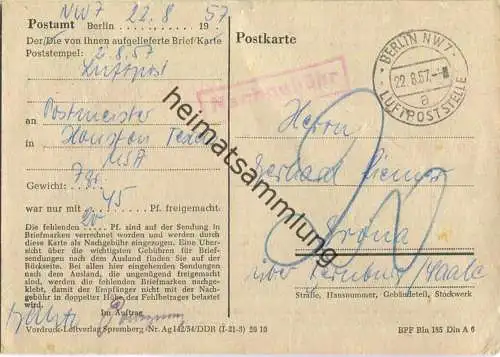 NW7 22.8 57
Postamt Berlin 19
Der/Die von Ihnen aufgelieferte Brief/Karte
Poststempel: 2.8.57
Luftpost
an Postmeister
in Houston Texas
USA
Gewicht: 7gr.
war nur mit 45 Pf. freigemacht.
Die fehlenden Pf. sind auf der Sendung in
Briefmarken verrechnet worden und werden durch
diese Karte als Nachgebühr eingezogen. Eine Über-
sicht über die wichtigsten Gebühren für Brief-
sendungen nach dem Ausland finden Sie auf der
Rückseite. Bei allen hier eingehenden Sendungen
nach dem Ausland, die ungenügend freigemacht
sind, werden die fehlenden Briefmarken nachge-
klebt, damit der Empfänger nicht mit der Nach-
gebühr in doppelter Höhe des Fehlbetrages belastet
wird.
Im Auftrag
Vordruck-Leitverlag Spremberg Nr. Ag 142/54/DDR (I-21-3) 26 10
Postkarte
Nachgebühr
BERLIN NW7
22.8.57
a
LUFTPOSTSTELLE
Herrn
Gerhard
Gröna
über Bernburg/Saale
Straße, Hausnummer, Gebäudeteil, Stockwerk
BPF Bln 185 Din A 6
heimatsammlung.de